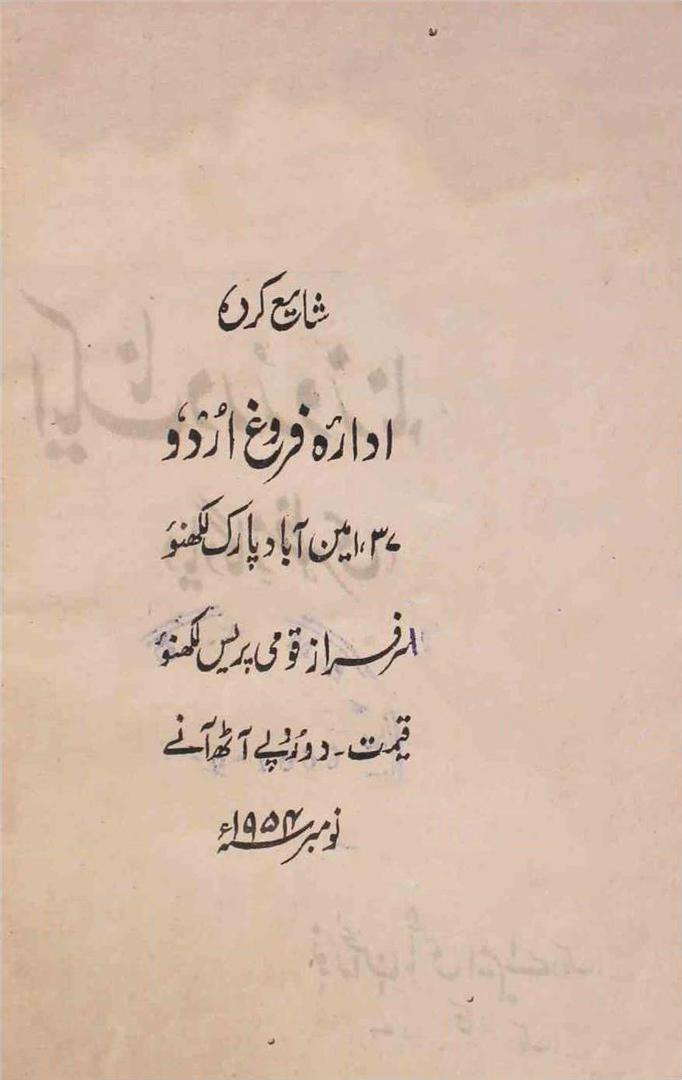 شایع کردہ
ادارۂ فروغ اُردو
۳۷، امین آباد پارک لکھنؤ
سرفراز قومی پریس لکھنؤ
قیمت۔ دو روپے آٹھ آنے
نومبر ۱۹۵۴ء